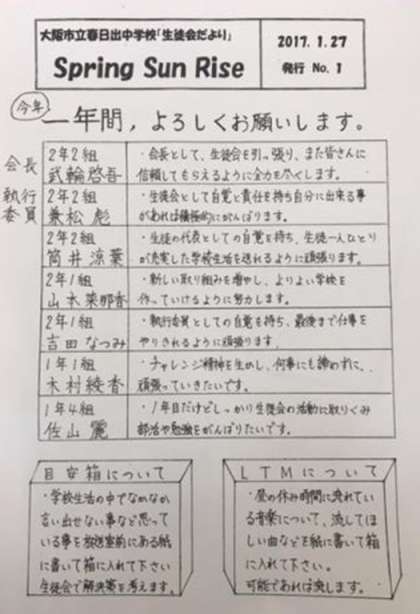 大阪市立春日出中学校「生徒会だより」
Spring Sun Rise
2017.1.27
発行 No.1
今年
一年間,よろしくお願いします。
会長
2年2組
武輪啓吾
・会長として、生徒会を引っ張り、また皆さんに
信頼してもらえるように全力を尽くします。
執行
委員
2年2組
兼松 彪
・生徒会として自覚と責任を持ち自分に出来る事
があれば積極的にがんばります。
2年2組
筒井涼葉
・生徒の代表としての自覚を持ち、生徒一人ひとり
が充実した学校生活を送れるように頑張ります。
2年1組
山本菜那香
・新しい取り組みを増やし、よりよい学校を
作っていけるように努力します。
2年1組
吉田なつみ
・執行委員としての自覚を持ち、最後まで仕事を
やりきれるように頑張ります。
1年1組
木村綾香
・チャレンジ精神を生かし、何事にも諦めずに、
頑張っていきたいです。
1年4組
佐山 麗
・1年目だけどしっかり生徒会の活動に取りくみ
部活や勉強をがんばりたいです。
目安箱について
・学校生活の中でなかなか
言い出せない事など思って
いる事を放送室前にある紙
に書いて箱に入れて下さい
生徒会で解決案を考えます。
LTMについて
・昼の休み時間に流れてい
る音楽について、流してほ
しい曲などを紙に書いて箱
に入れて下さい。
可能であれば流します。